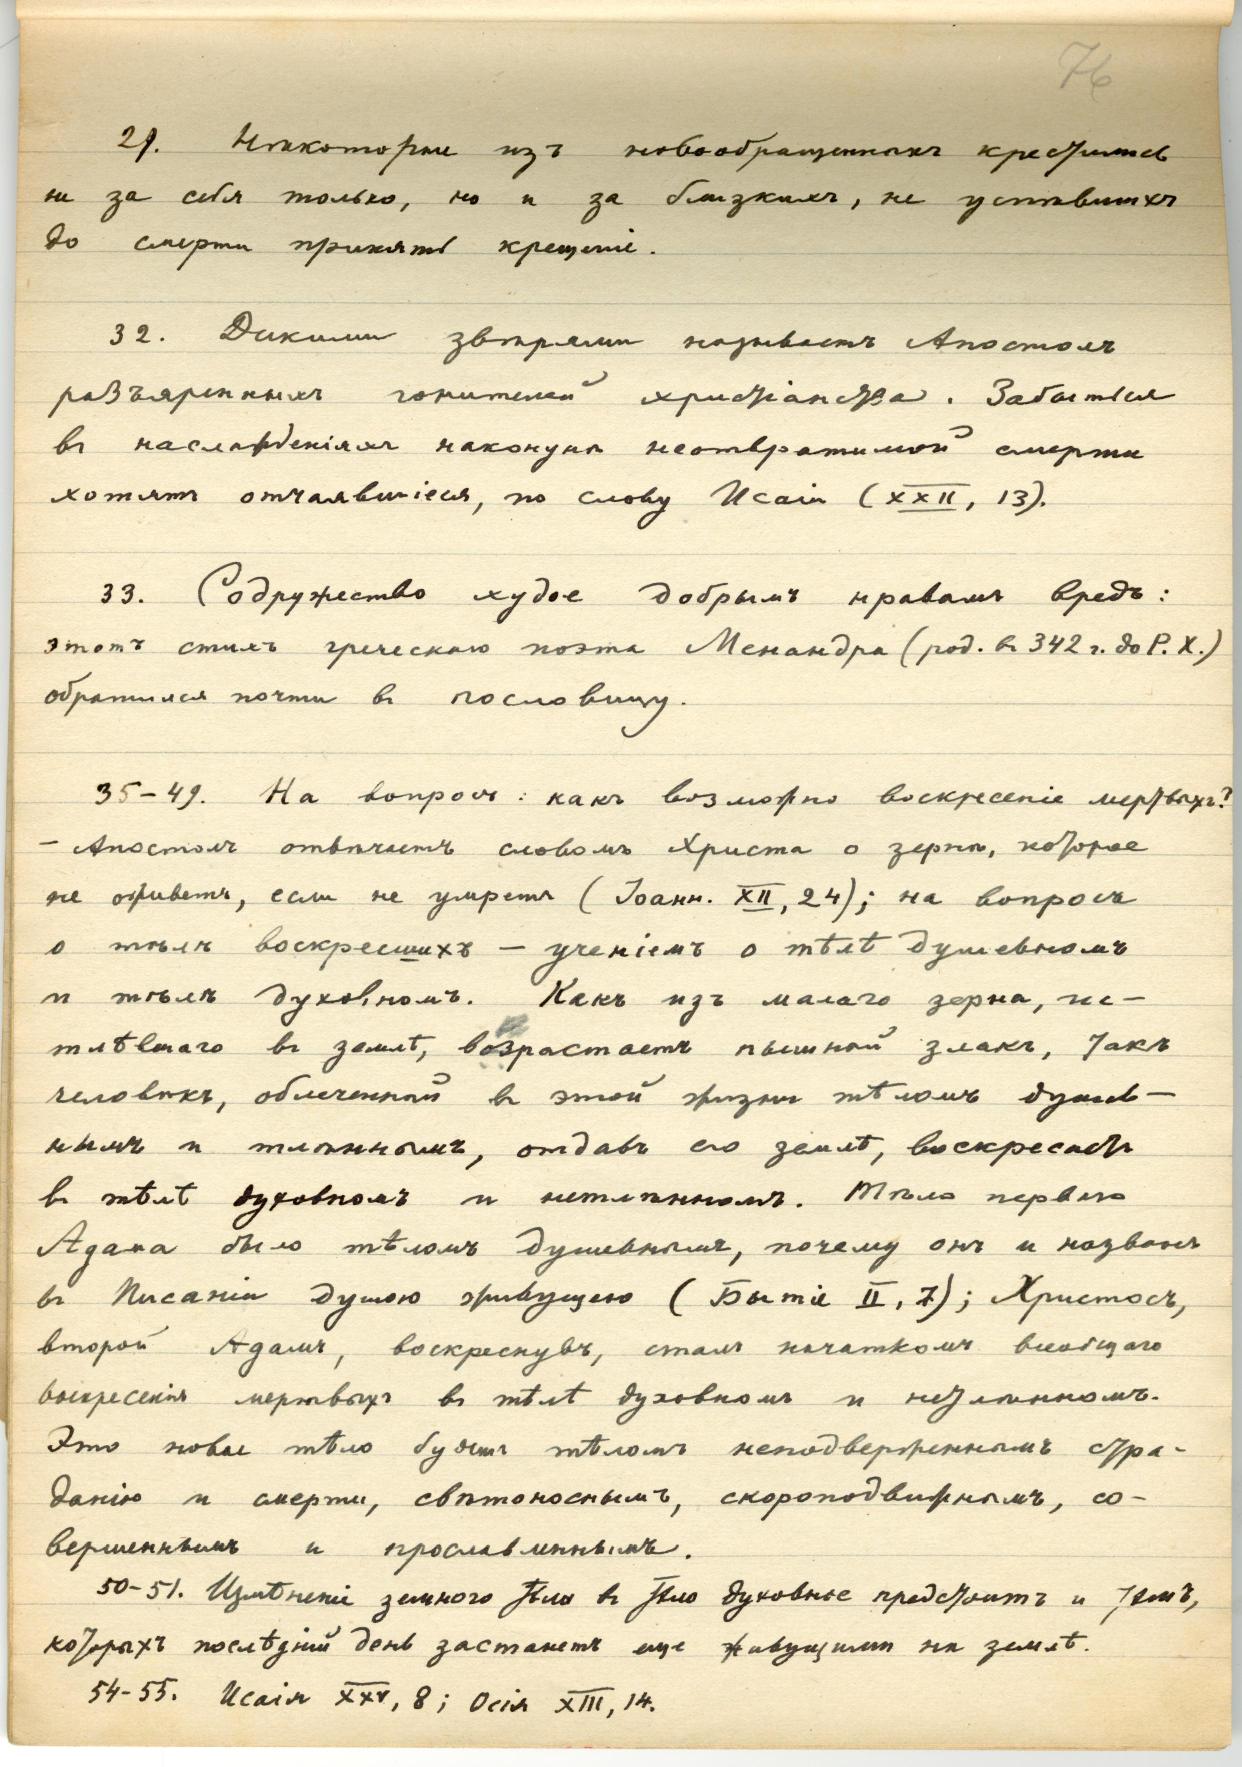 76
29. Нѣкоторые изъ новообращенныхъ крестились
не за себя только, но и за близкихъ, не успѣвшихъ
до смерти принять крещеніе.
32. Дикими звѣрями называетъ Апостолъ
разъяренныхъ гонителей христіанства. Забыться
въ наслажденіяхъ наканунѣ неотвратимой смерти
хотятъ отчаявшіеся, по слову Исаіи (XXII, 13).
33. Содружество худое добрымъ нравамъ вредъ:
этотъ стихъ греческаго поэта Менандра (род. въ 342 г. до Р. Х.)
обратился почти въ пословицу.
35-49. На вопросъ: какъ возможно воскресеніе мертвыхъ?
- Апостолъ отвѣчаетъ словомъ Христа о зернѣ, которое
не оживетъ, если не умретъ (Іоанн. XII, 24); на вопросъ
о тѣлѣ воскресшихъ — ученіемъ о тѣлѣ душевномъ
и тѣлѣ духовномъ. Какъ изъ малаго зерна, ис-
тлѣвшаго въ землѣ, возрастаетъ пышный злакъ, такъ
человѣкъ, облеченный въ этой жизни тѣломъ душев-
нымъ и тлѣннымъ, отдавъ его землѣ, воскресаетъ
въ тѣлѣ духовномъ и нетлѣнномъ. Тѣло перваго
Адама было тѣломъ душевнымъ, почему онъ и названъ
въ Писаніи душою живущею (Бытіе II, 7); Христосъ,
второй Адамъ, воскреснувъ, сталъ начаткомъ всеобщаго
воскресенія мертвыхъ въ тѣлѣ духовномъ и нетлѣнномъ.
Это новое тѣло будетъ тѣломъ неподверженнымъ стра-
данію и смерти, свѣтоноснымъ, скороподвижнымъ, со-
вершеннымъ и прославленнымъ.
50-51. Измѣненіе земного тѣла въ тѣло духовное предстоитъ и тѣмъ,
которыхъ послѣдній день застанетъ еще живущими на землѣ.
54-55. Исаія XXV, 8; Осія XIII, 14.